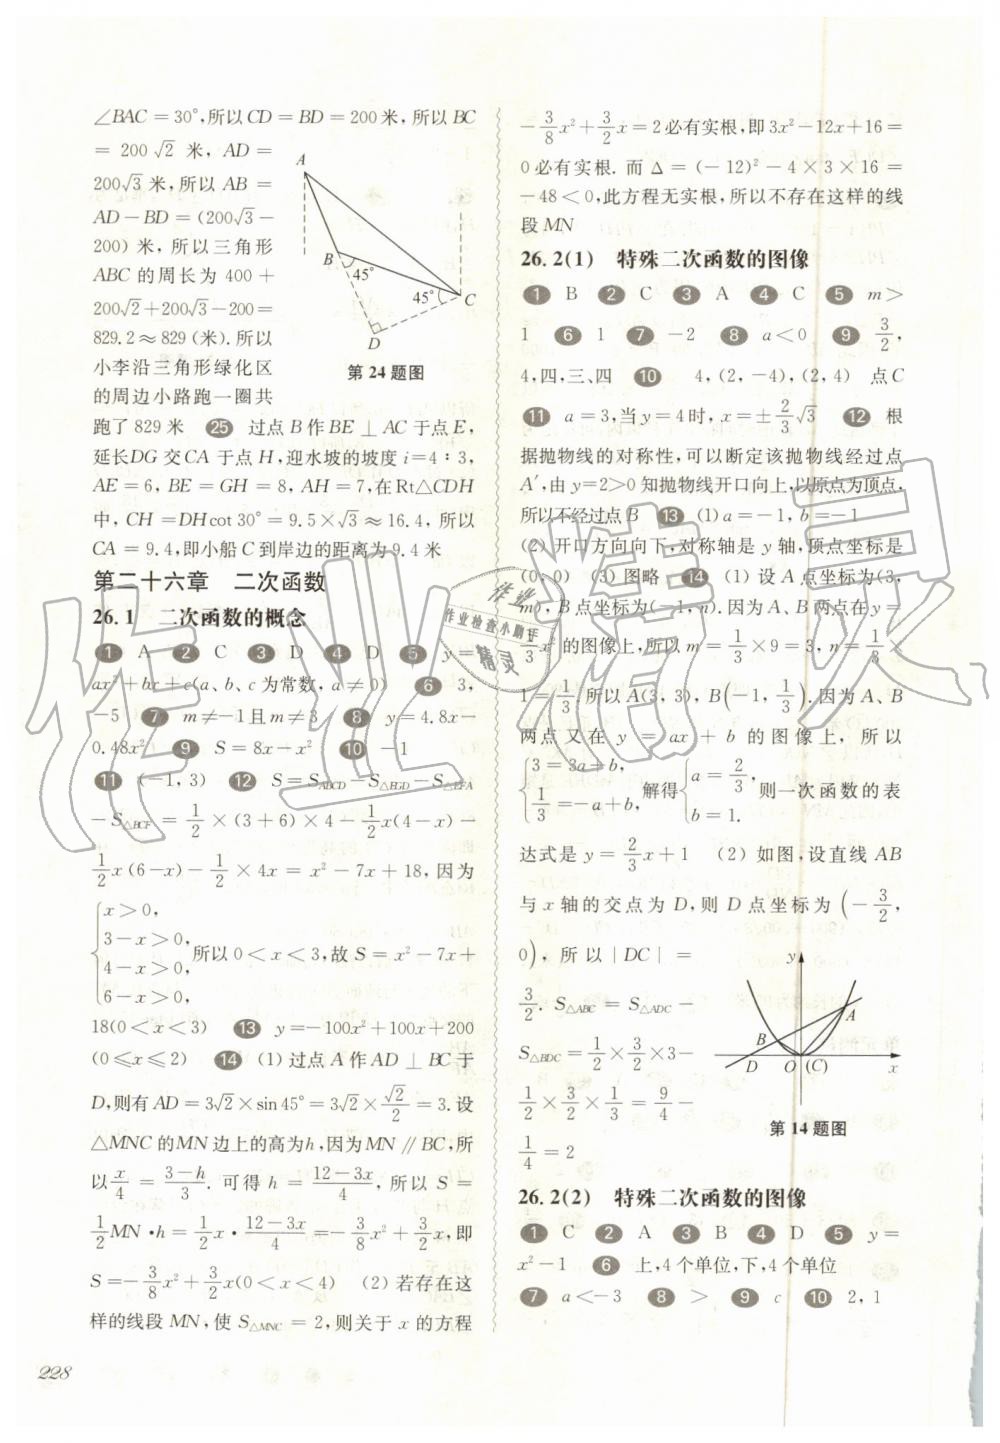 ∠BAC＝30°,所以CD＝BD＝200米,所以BC
＝ 200√2 米, AD ＝
200√3米,所以 AB ＝
AD－BD＝(200√3－
200) 米,所以三角形
ABC 的周长为 400＋
200√2＋200√3－200＝
829.2≈829 (米).所以
小李沿三角形绿化区
的周边小路跑一圈共
A
B
45°
45°
C
D
第24题图
跑了829米 25 过点B作BE⊥AC于点E,
延长DG交CA于点H,迎水坡的坡度i＝4∶3,
AE＝6, BE＝GH＝8, AH＝7,在Rt△CDH
中, CH＝DHcot 30°＝9.5×√3≈16.4, 所以
CA＝9.4,即小船C到岸边的距离为9.4米
第二十六章 二次函数
26.1 二次函数的概念
1 A 2 C 3 D 4 D 5 y＝
ax²＋bx＋c(a、b、c为常数, a≠0) 6 3,
－5 7 m≠－1且m≠3 8 y＝4.8x－
0.48x² 9 S＝8x－x² 10 －1
11 (－1, 3) 12 S＝S_ABCD－S△EGD－S△EFA
－S△BCF＝1/2×(3＋6)×4－1/2x(4－x)－
1/2x(6－x)－1/2×4x＝x²－7x＋18,因为
{x＞0,
3－x＞0,
4－x＞0,
6－x＞0,
所以0＜x＜3,故S＝x²－7x＋
18(0＜x＜3) 13 y＝－100x²＋100x＋200
(0≤x≤2) 14 (1) 过点A作AD⊥BC于
D,则有AD＝3√2×sin 45°＝3√2×√2/2＝3.设
△MNC的MN边上的高为h,因为MN∥BC,所
以x/4＝(3－h)/3. 可得h＝(12－3x)/4, 所以S＝
1/2MN·h＝1/2x·(12－3x)/4＝－3/8x²＋3/2x,即
S＝－3/8x²＋3/2x(0＜x＜4) (2) 若存在这
样的线段MN, 使S△MNC＝2, 则关于x的方程
228
－3/8x²＋3/2x＝2必有实根,即3x²－12x＋16＝
0必有实根. 而 Δ＝(－12)²－4×3×16＝
－48＜0,此方程无实根, 所以不存在这样的线
段MN
26.2(1) 特殊二次函数的图像
1 B 2 C 3 A 4 C 5 m＞
1 6 1 7 －2 8 a＜0 9 3/2,
4,四,三、四 10 4, (2, －4), (2, 4) 点C
11 a＝3,当y＝4时, x＝±2/3√3 12 根
据抛物线的对称性,可以断定该抛物线经过点
A′,由y＝2＞0知抛物线开口向上,以原点为顶点,
所以不经过点B 13 (1) a＝－1, b＝－1
(2) 开口方向向下,对称轴是y轴,顶点坐标是
(0, 0) (3) 图略 14 (1) 设A点坐标为(3,
m), B点坐标为(－1, n).因为A、B两点在y＝
1/3x²的图像上,所以m＝1/3×9＝3, n＝1/3×
1＝1/3.所以A(3, 3), B(－1, 1/3).因为A、B
两点又在y＝ax＋b的图像上, 所以
{3＝3a＋b,
1/3＝－a＋b,
解得
{a＝2/3,
b＝1.
则一次函数的表
达式是y＝2/3x＋1 (2) 如图,设直线AB
与x轴的交点为D, 则D点坐标为(－3/2,
0), 所以|DC|＝
3/2. S△ABC＝S△ADC－
S△BDC＝1/2×3/2×3－
1/2×3/2×1/3＝9/4－
1/4＝2
y
A
B
D
O
(C)
x
第14题图
26.2(2) 特殊二次函数的图像
1 C 2 A 3 B 4 D 5 y＝
x²－1 6 上,4个单位,下,4个单位
7 a＜－3 8 ＞ 9 c 10 2, 1
作业精灵
作业
作业检查小助手
精灵